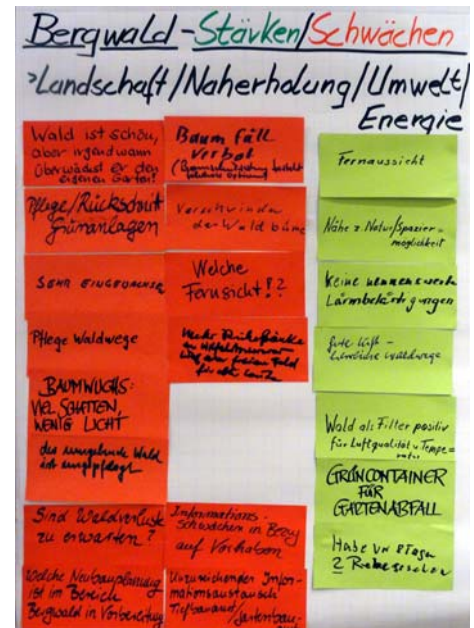 Bergwald - Stärken/Schwächen
Landschaft/Naherholung/Umwelt/
Energie
Wald ist schön,
aber irgendwann
überwächst er den
eigenen Garten!
Pflege/Rückschnitt
Grünanlagen
SEHR EINGEWACHSEN
Pflege Waldwege
BAUMWUCHS:
VIEL SCHATTEN,
WENIG LICHT
der umgebende Wald
ist ungepflegt
Sind Waldverluste
zu erwarten?
Welche Neubauplanung
ist im Bereich
Bergwald in Vorbereitung
Baum Fäll
Verbot
Verschwinden
der Wald
Welche
Fernsicht!?
Mehr
für alte Leute
Informations-
schwächen in Bezug
auf Vorhaben
Unzureichender Infor-
mationsaustausch
Tiefbauamt/Gartenbau-
Fernaussicht
Nähe z. Natur/Spazier-
möglichkeit
Keine nennenswerte
Lärmbelästigungen
gute Luft -
herrliche Waldwege
Wald als Filter positiv
für Luftqualität u. Tempe-
ratur
GRÜNCONTAINER
FÜR
GARTENABFALL
Habe vor 8 Tagen
2 Rehe gesehen